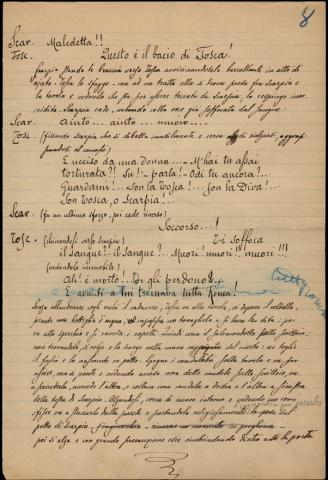 8
Scar. Maledetta!!
Tosc. Questo è il bacio di Tosca!
Scarpia stende le braccia verso Tosca avvicinandosele barcollante in atto di
aiuto. Tosca lo sfugge ma ad un tratto ella si trova presa fra Scarpia e
la tavola e vedendo che sta per essere toccata da Scarpia, lo respinge inor-
ridita. Scarpia cade, urlando colla voce già soffocata dal sangue.
Scar. Aiuto... aiuto... muoio...
Tosc. (fissando Scarpia che si dibatte inutilmente e cerca di rialzarsi, aggrap-
pandosi al canapè)
E ucciso da una donna... M'hai tu assai
torturata?! Su! parla! Odi tu ancora?...
Guardami... Son la Tosca!... Son la Diva!..
Son Tosca, o Scarpia!..
Scar. (fa un ultimo sforzo, poi cade riverso)
Soccorso...!
Tosc. (chinandosi verso Scarpia) Ti soffoca
il sangue?.. il sangue?.. Muori! muori!!! muori!!!
(vedendolo immobile)
Ah! è morto!... Or gli perdono!..
E avanti a lui tremava tutta Roma!
Senza abbandonare cogli occhi il cadavere, Tosca va alla tavola, vi depone il coltello,
prende una bottiglia d'acqua, inzuppa un tovagliolo e si lava le dita, poi
va allo specchio e si ravvia i capelli. Quindi cerca il salvacondotto sullo scrittoio,
non trovandolo, si volge e lo scorge nella mano del morto: ne toglie
il foglio e lo nasconde in petto. Spegne il candelabro sulla tavola e va per
uscire, ma si pente e vedendo accesa una delle candele sullo scrittoio, va
a prenderla, accende l'altra, e colloca una candela a destra e l'altra a sinistra
della testa di Scarpia. Alzandosi, cerca di nuovo intorno e vedendo un croce-
fisso va a staccarlo dalla parete e portandolo religiosamente
petto di Scarpia
poi si alza e con grande precauzione esce, richiudendo dietro a sè la porta